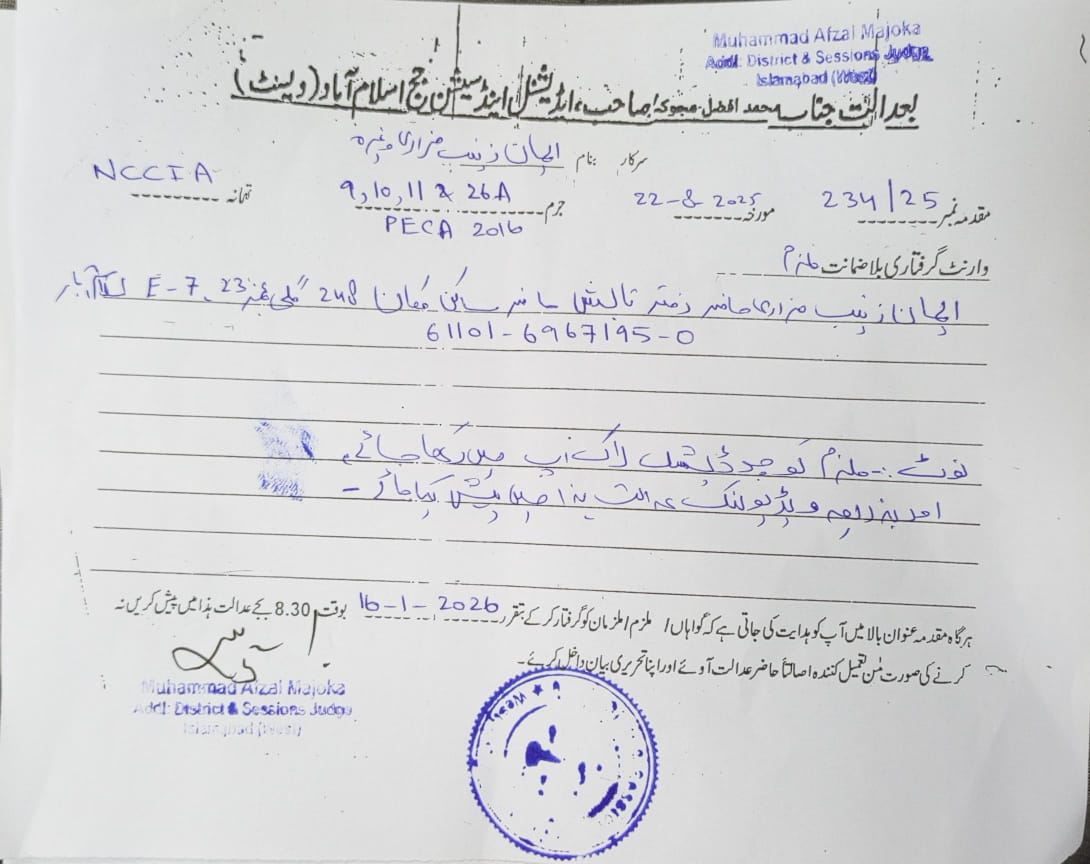 Muhammad Afzal Majoka
Addl: District & Sessions Judge
Islamabad (West)
بعدالت جناب محمد افضل مجوکہ صاحب، ایڈیشنل اینڈ سیشن جج اسلام آباد (ویسٹ)
سرکار بنام ایمان زینب مزاری وغیرہ
مقدمہ نمبر 234/25 مورخہ 22-8-2025 جرم 9,10,11 & 26A PECA 2016 تھانہ NCCIA
وارنٹ گرفتاری بلا ضمانت ملزم
ایمان زینب مزاری حاضر دختر ساکن مکان 248 گلی نمبر 23 E-7 اسلام آباد
61101-6967195-0
نوٹ :- ملزم کو جوڈیشل لاک اپ میں رکھا جائے
اور بذریعہ ویڈیو لنک عدالت ہذا میں پیش کیا جائے -
ہرگاہ مقدمہ عنوان بالا میں آپ کو ہدایت کی جاتی ہے کہ گواہاں / ملزم / ملزمان کو گرفتار کر کے بتقرر 16-1-2026 بوقت 8.30 بجے عدالت ہذا میں پیش کریں نہ
کرنے کی صورت من تعمیل کنندہ اصالتاً حاضر عدالت آوے اور اپنا تحریری بیان داخل کرے۔
Muhammad Afzal Majoka
Addl: District & Sessions Judge
Islamabad (West)